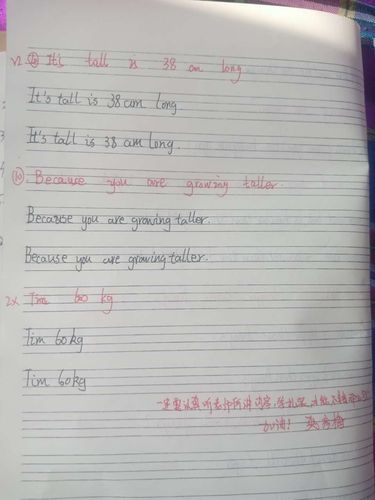 v2 ⑥ It's tall is 38 am long
It's tall is 38 cm long
It's tall is 38 am long.
⑩. Because you are growing taller.
Because you are growing taller.
Because you are growing taller.
2x Jim 60 kg
Jim 60kg
Jim 60kg
一定要认真听老师所讲内容,
加油!